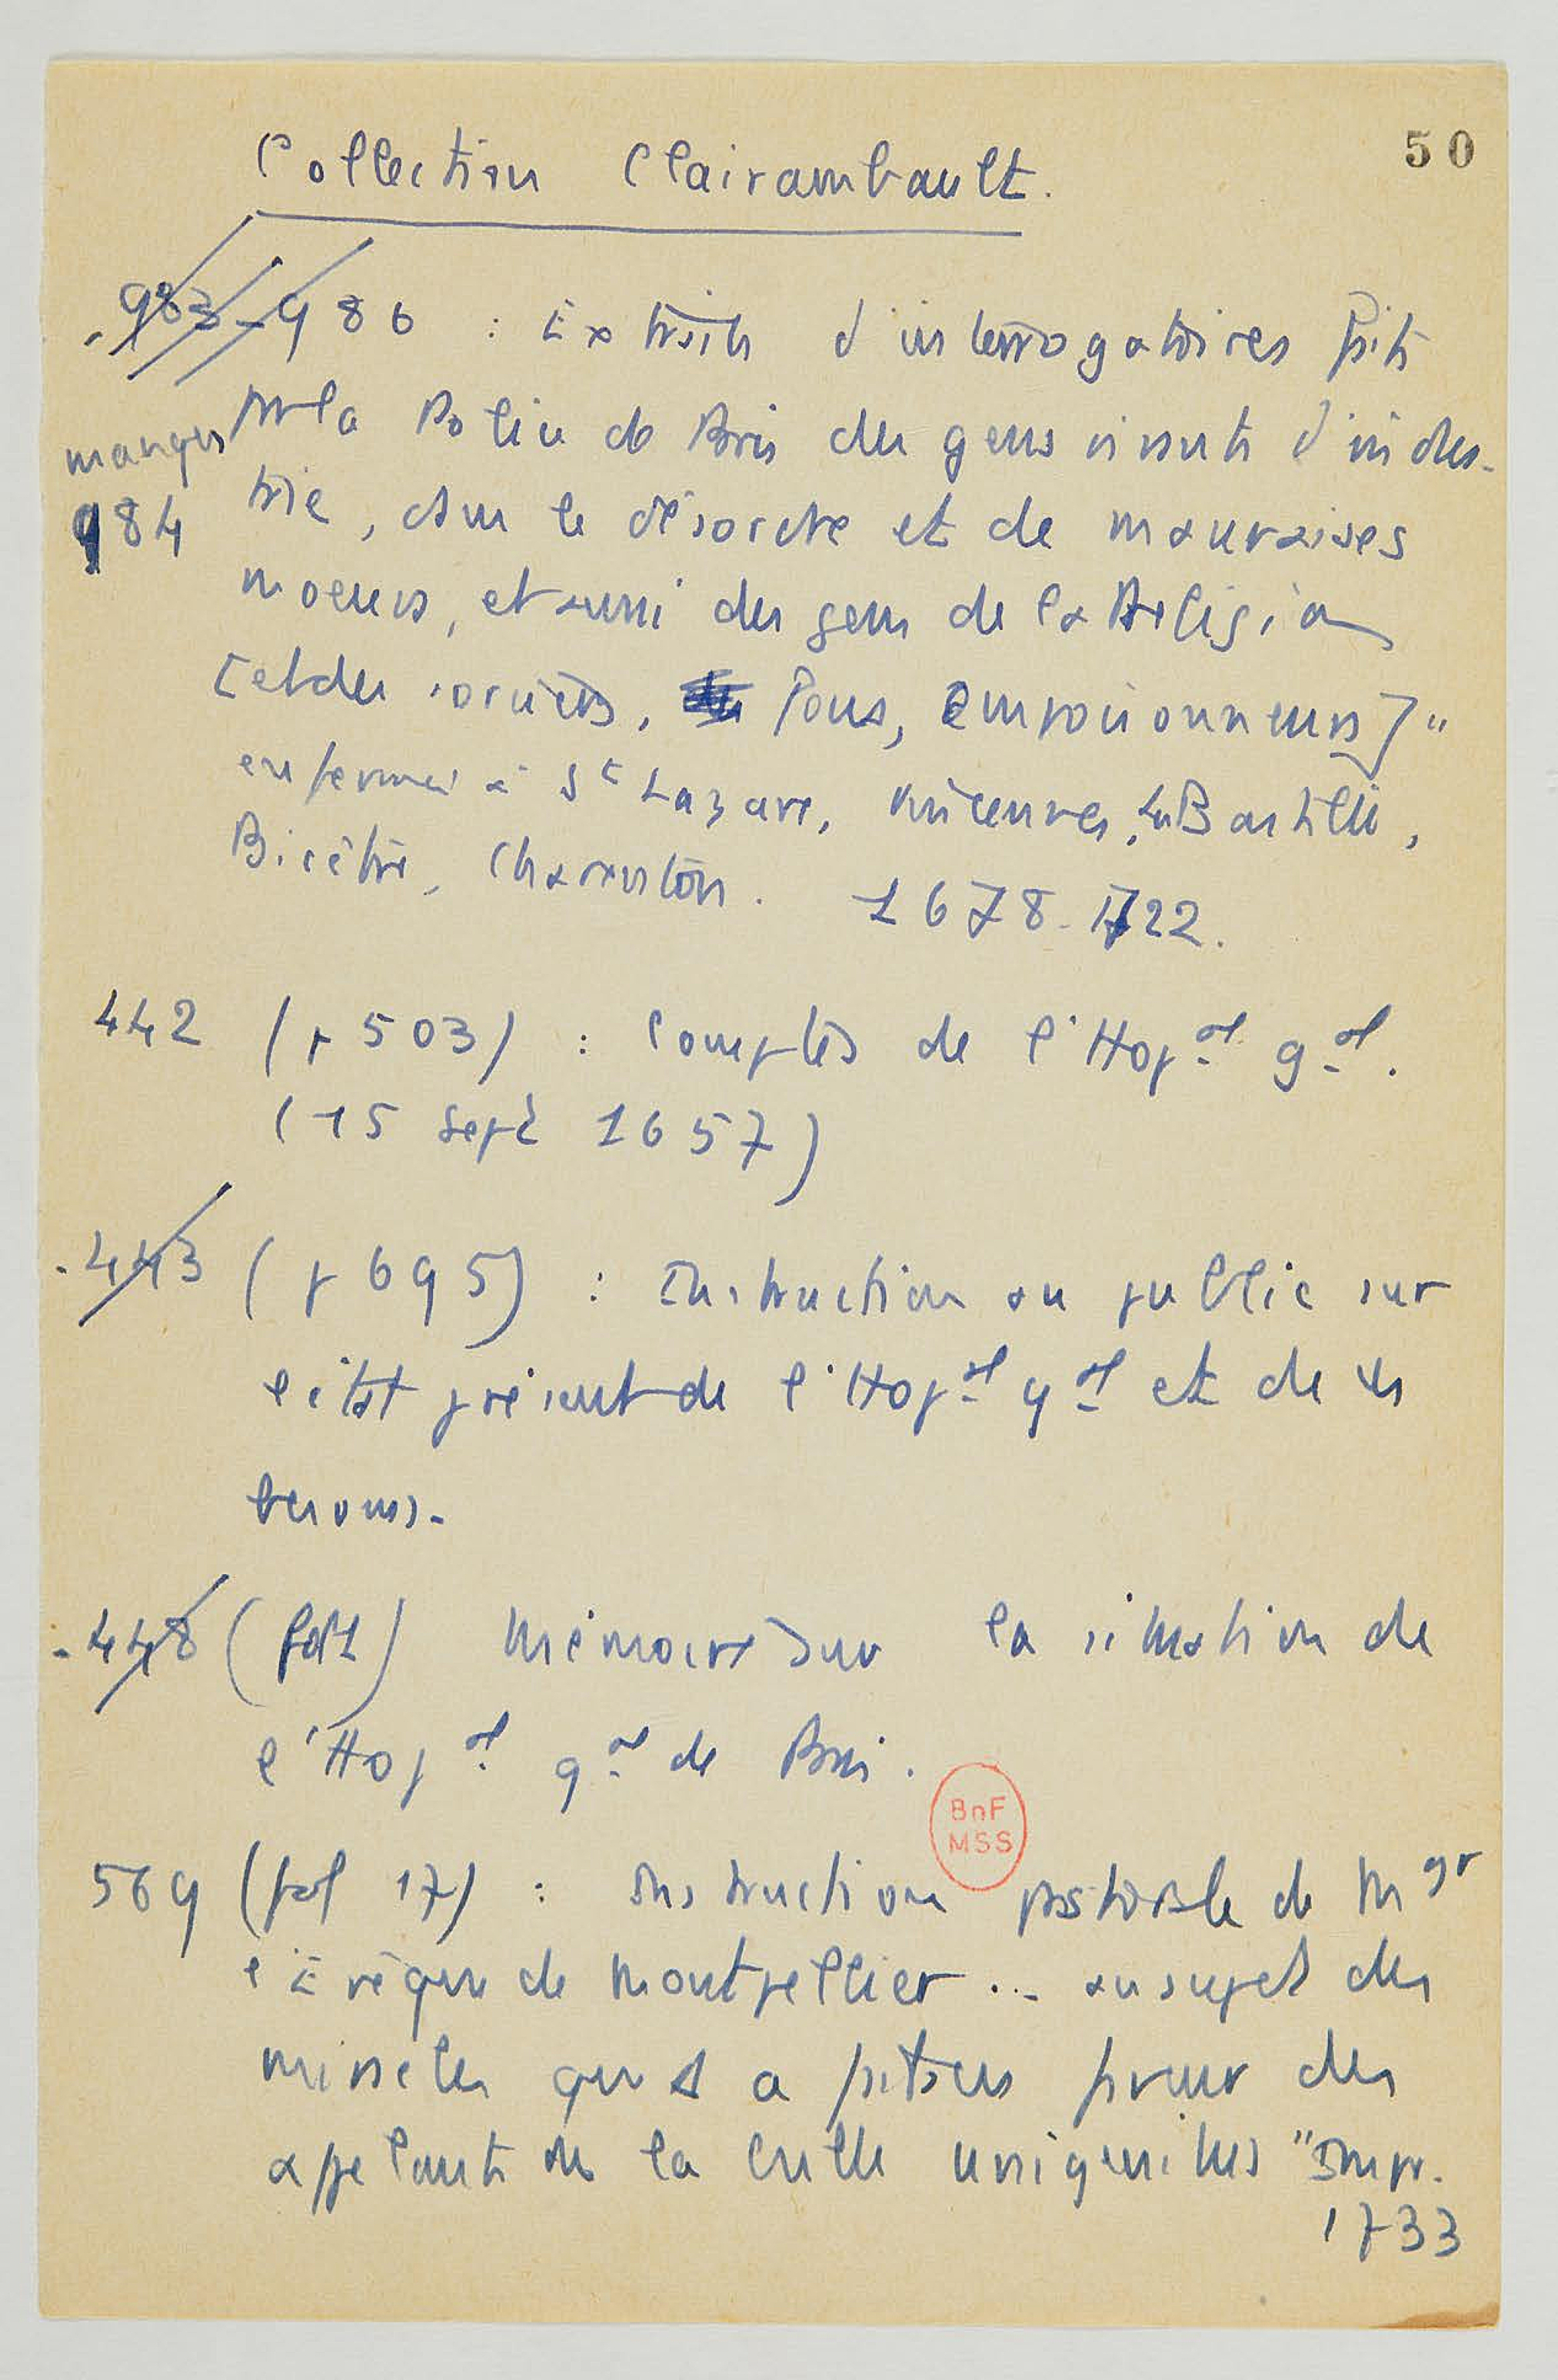 50
Collection Clairambault.
- 983-986 : Extraits d'interrogatoires faits
par la Police de Paris des gens vivants d'indus-
manque
984
trie, dans le désordre et de mauvaises
moeurs, et aussi des gens de la Religion
[et des sorciers, fous, empoisonneurs]"
enfermés à St Lazare, Vincennes, la Bastille,
Bicêtre, Charenton. 1678-1722.
442 (p 503) : Comptes de l'Hopal gal.
(15 Sept 1657)
- 443 (p 695) : Instruction au public sur
l'état présent de l'Hopal gal et de ses
besoins.
- 448 (fol 1) Mémoire sur la situation de
l'Hopal gal de Paris.
BnF
MSS
569 (fol 17) : Instruction pastorale de Mgr
l'Evêque de Montpellier ... au sujet des
miracles que D a faits en faveur des
apelants de la bulle unigenitus" Impr.
1733